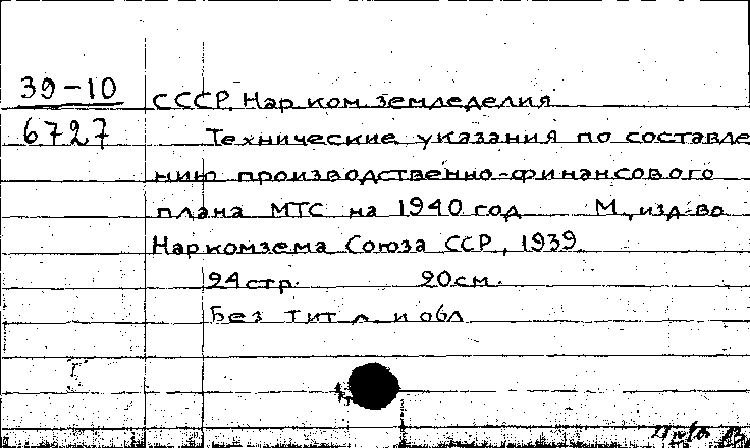 39-10
6727
СССР. Нар. ком. земледелия
Технические указания по составле
нию производственно-финансового
плана МТС на 1940 год М., изд-во
Наркомзема Союза ССР, 1939
24 стр. 20 см.
Без тит. л. и обл